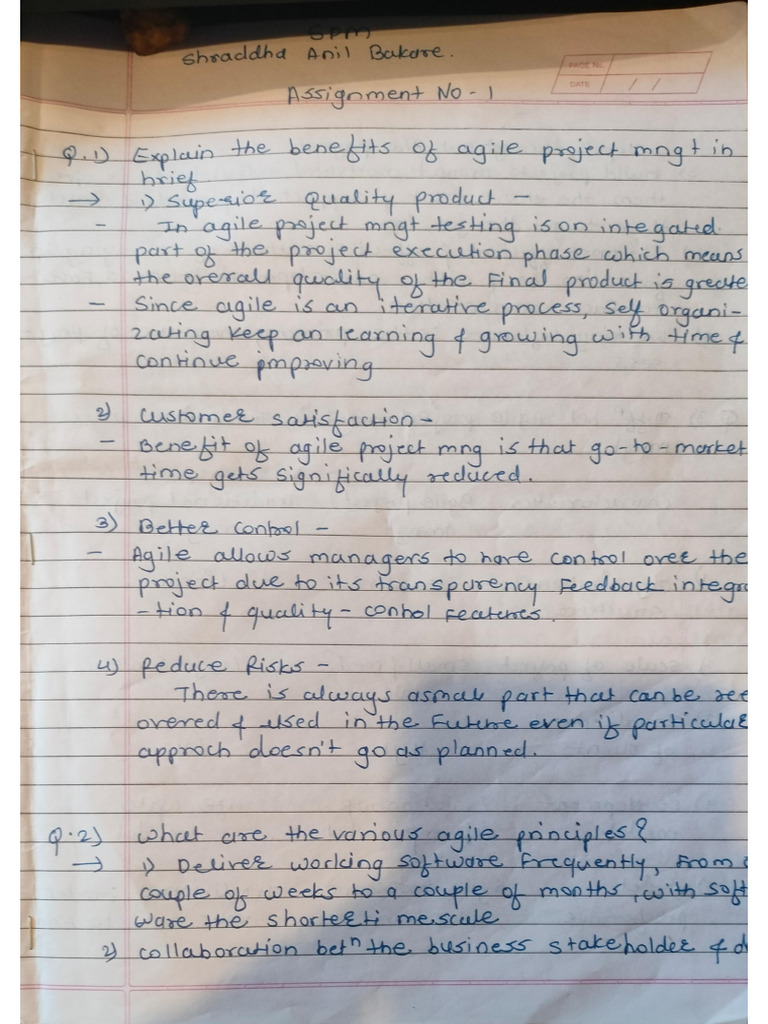 SPM
Shraddha Anil Bakare.
PAGE No.
DATE / /
Assignment No - 1
Q.1) Explain the benefits of agile project mngt in
brief
→ 1) Superior Quality product -
- In agile project mngt testing is on integated
part of the project execution phase which means
the overall quality of the Final product is greate
- Since agile is an iterative process, self organi-
zating keep an learning & growing with time &
continue improving
2) Customer satisfaction -
- Benefit of agile project mng is that go-to-market
time gets significally reduced.
3) Better control -
- Agile allows managers to have control over the
project due to its transparency Feedback integra
-tion & quality-control Features.
4) Reduce Risks -
There is always asmall part that can be rec
overed & used in the Future even if particular
approch doesn't go as planned.
Q.2) what are the various agile principles?
→ 1) Deliver working software Frequently, From
couple of weeks to a couple of months, with soft
ware the shorter ti mescale
2) collaboration betn the business stakeholder & d